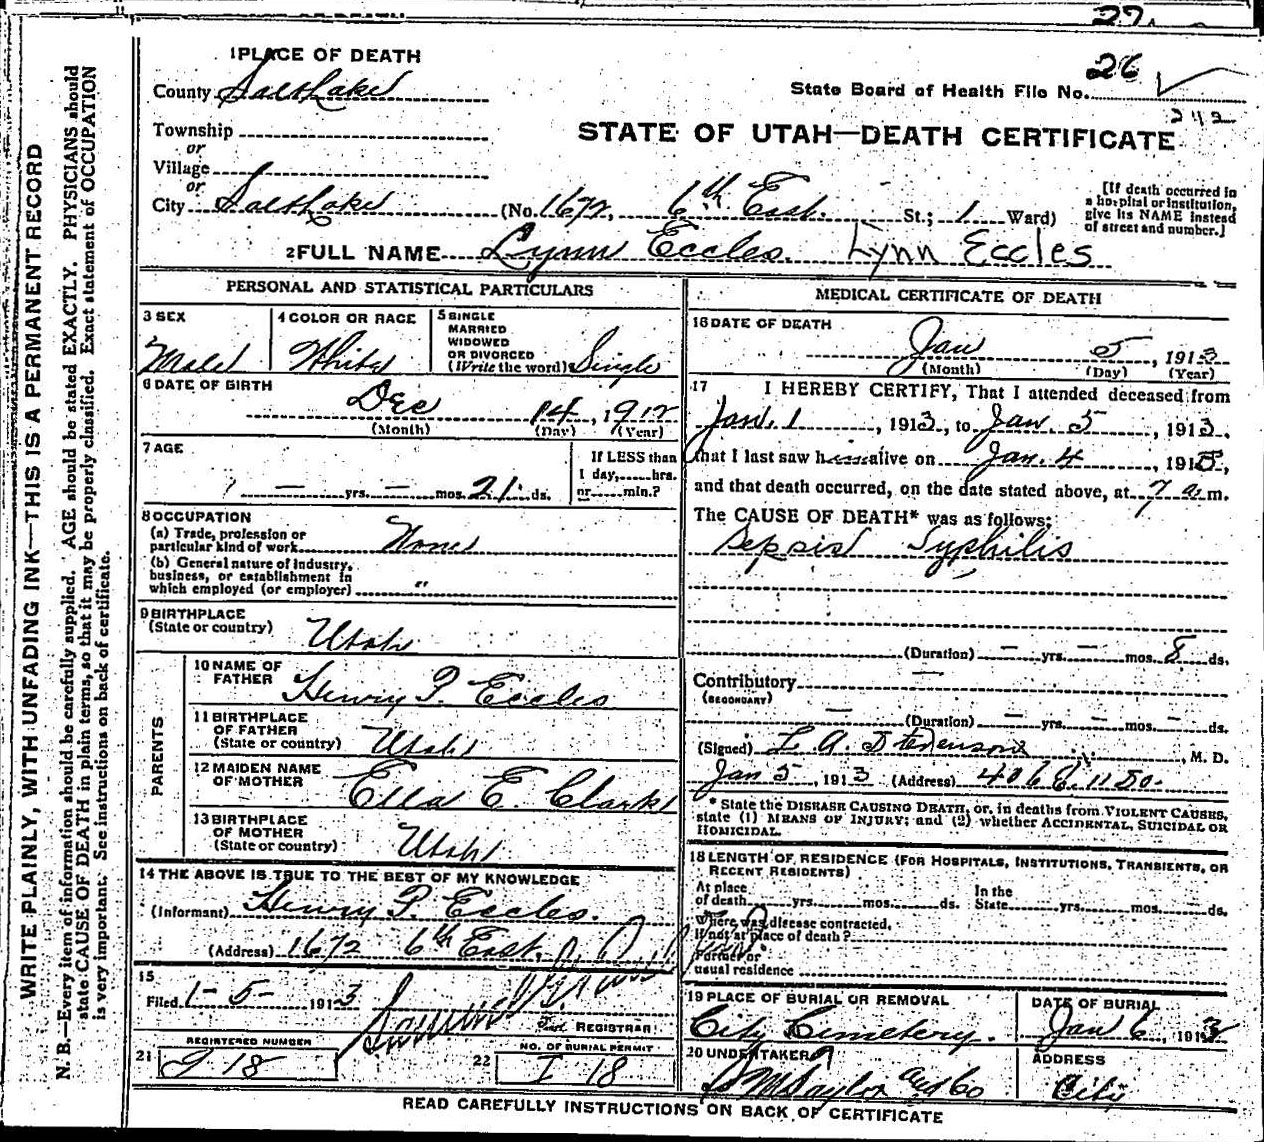 27
1 PLACE OF DEATH
County Salt Lake
26
State Board of Health File No.
242
Township
or
Village
or
City Salt Lake (No. 1672, 6th East. St.; 1 Ward)
STATE OF UTAH—DEATH CERTIFICATE
[If death occurred in
a hospital or institution,
give its NAME instead
of street and number.]
2 FULL NAME Lynn Eccles. Lynn Eccles
PERSONAL AND STATISTICAL PARTICULARS
3 SEX
Male
4 COLOR OR RACE
White
5 SINGLE
MARRIED
WIDOWED
OR DIVORCED
(Write the word) Single
6 DATE OF BIRTH
Dec 14, 1912
(Month) (Day) (Year)
7 AGE
— yrs. — mos. 21 ds.
If LESS than
1 day, hrs.
or min.?
8 OCCUPATION
(a) Trade, profession or
particular kind of work None
(b) General nature of industry,
business, or establishment in
which employed (or employer) "
9 BIRTHPLACE
(State or country) Utah
PARENTS
10 NAME OF
FATHER Henry P. Eccles
11 BIRTHPLACE
OF FATHER
(State or country) Utah
12 MAIDEN NAME
OF MOTHER Ella E. Clark
13 BIRTHPLACE
OF MOTHER
(State or country) Utah
14 THE ABOVE IS TRUE TO THE BEST OF MY KNOWLEDGE
(Informant) Henry P. Eccles.
(Address) 1672 6th East.
15
Filed 1-5- 1913
REGISTRAR
REGISTERED NUMBER
21 I 18
NO. OF BURIAL PERMIT
22 I 18
MEDICAL CERTIFICATE OF DEATH
16 DATE OF DEATH
Jan 5, 1913
(Month) (Day) (Year)
17 I HEREBY CERTIFY, That I attended deceased from
Jan. 1, 1913, to Jan. 5, 1913,
that I last saw h alive on Jan. 4, 1913,
and that death occurred, on the date stated above, at 7 a m.
The CAUSE OF DEATH* was as follows:
Sepsis Syphilis
(Duration) — yrs. — mos. 8 ds.
Contributory —
(SECONDARY)
— (Duration) — yrs. — mos. — ds.
(Signed) L. A. Stevenson, M. D.
Jan 5, 1913 (Address)
* State the DISEASE CAUSING DEATH, or, in deaths from VIOLENT CAUSES,
state (1) MEANS OF INJURY; and (2) whether ACCIDENTAL, SUICIDAL OR
HOMICIDAL.
18 LENGTH OF RESIDENCE (FOR HOSPITALS, INSTITUTIONS, TRANSIENTS, OR
RECENT RESIDENTS)
At place
of death yrs. mos. ds.
In the
State yrs. mos. ds.
Where was disease contracted,
If not at place of death?
Former or
usual residence
19 PLACE OF BURIAL OR REMOVAL
City Cemetery.
DATE OF BURIAL
Jan 6, 1913
20 UNDERTAKER
S M Taylor and Co
ADDRESS
City
READ CAREFULLY INSTRUCTIONS ON BACK OF CERTIFICATE
WRITE PLAINLY, WITH UNFADING INK—THIS IS A PERMANENT RECORD
N. B.—Every item of information should be carefully supplied. AGE should be stated EXACTLY. PHYSICIANS should
state CAUSE OF DEATH in plain terms, so that it may be properly classified. Exact statement of OCCUPATION
is very important. See instructions on back of certificate.